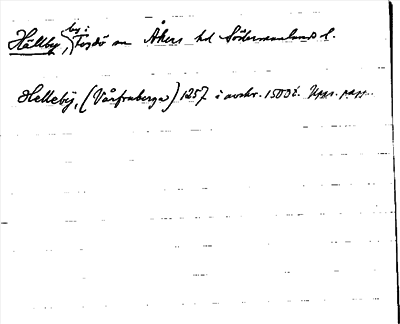 Hällby, by i Fogdö sn Åkers hd Södermanlands l.
Helleby, (Vårfruberga) 1257 i avskr. 1500 t. Upps. papp.